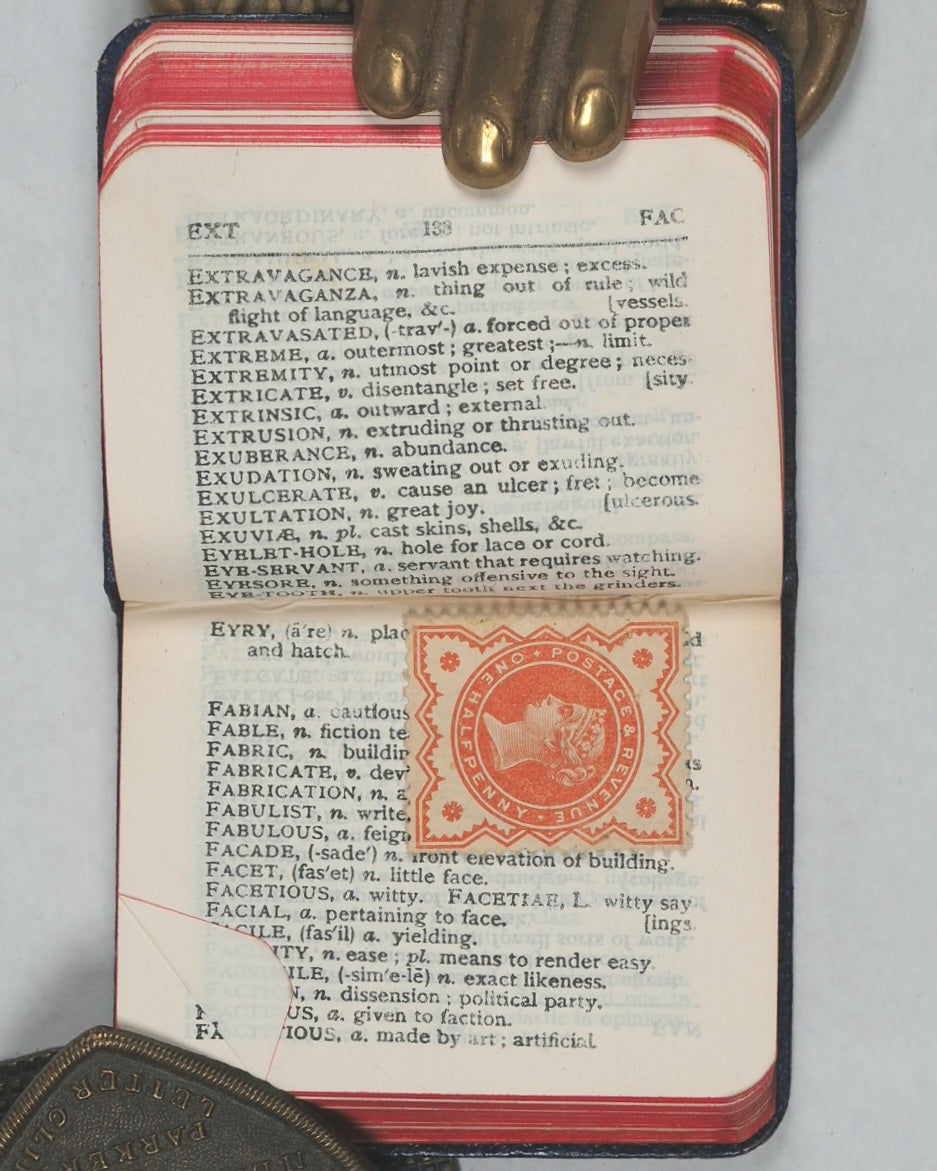 EXT 138 FAC
EXTRAVAGANCE, n. lavish expense; excess.
EXTRAVAGANZA, n. thing out of rule; wild
flight of language, &c. [vessels.
EXTRAVASATED, (-trav'-) a. forced out of proper
EXTREME, a. outermost; greatest;—n. limit.
EXTREMITY, n. utmost point or degree; neces-
EXTRICATE, v. disentangle; set free. [sity
EXTRINSIC, a. outward; external.
EXTRUSION, n. extruding or thrusting out.
EXUBERANCE, n. abundance.
EXUDATION, n. sweating out or exuding.
EXULCERATE, v. cause an ulcer; fret; become
EXULTATION, n. great joy. [ulcerous.
EXUVIÆ, n. pl. cast skins, shells, &c.
EYELET-HOLE, n. hole for lace or cord.
EYE-SERVANT, a. servant that requires watching.
EYESORE, n. something offensive to the sight.
EYE-TOOTH, n. upper tooth next the grinders.
EYRY, (ā're) n.
and hatch.
FABIAN, a. cautious
FABLE, n. fiction
FABRIC, n.
FABRICATE, v.
FABRICATION, n.
FABULIST, n. write
FABULOUS, a.
FACADE, (-sade') n. front elevation of building.
FACET, (fas'et) n. little face.
FACETIOUS, a. witty. FACETIAE, L. witty say
FACIAL, a. pertaining to face. [ings.
(fas'il) a. yielding.
n. ease; pl. means to render easy
(-sim'e-lē) n. exact likeness.
n. dissension; political party.
a. given to faction.
a. made by art; artificial.
POSTAGE & REVENUE
ONE HALFPENNY
PARKER
LETTER CLI